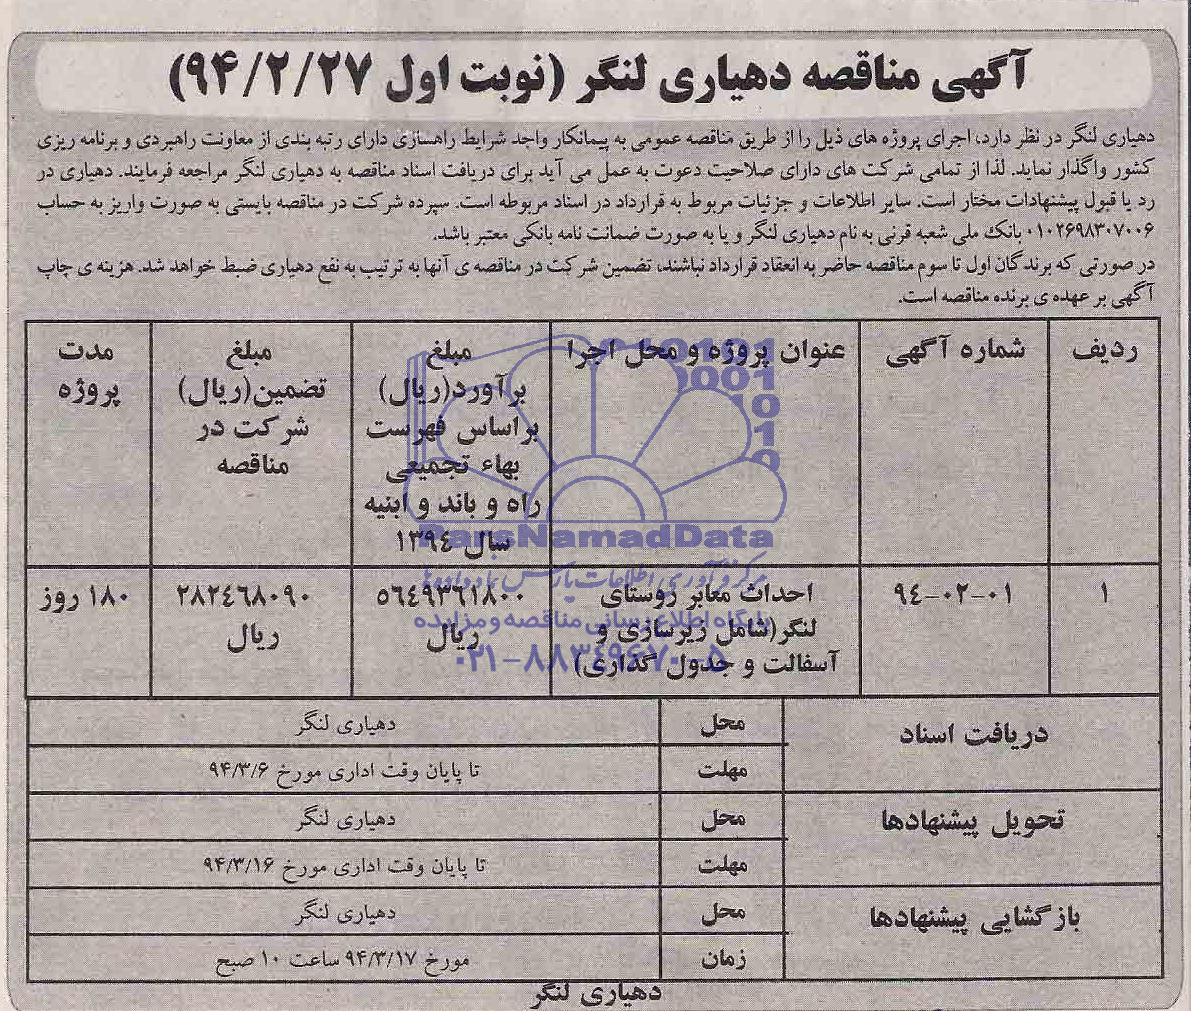 آگهی مناقصه دهیاری لنگر (نوبت اول ۹۴/۲/۲۷)
دهیاری لنگر در نظر دارد، اجرای پروژه های ذیل را از طریق مناقصه عمومی به پیمانکار واجد شرایط راهسازی دارای رتبه بندی از معاونت راهبردی و برنامه ریزی
کشور واگذار نماید. لذا از تمامی شرکت های دارای صلاحیت دعوت به عمل می آید برای دریافت اسناد مناقصه به دهیاری لنگر مراجعه فرمایند. دهیاری در
رد یا قبول پیشنهادات مختار است. سایر اطلاعات و جزئیات مربوط به قرارداد در اسناد مربوطه است. سپرده شرکت در مناقصه بایستی به صورت واریز به حساب
۰۱۰۲۶۹۸۳۰۷۰۰۶ بانک ملی شعبه قرنی به نام دهیاری لنگر و یا به صورت ضمانت نامه بانکی معتبر باشد.
در صورتی که برندگان اول تا سوم مناقصه حاضر به انعقاد قرارداد نباشند، تضمین شرکت در مناقصه ی آنها به ترتیب به نفع دهیاری ضبط خواهد شد. هزینه ی چاپ
آگهی بر عهده ی برنده مناقصه است.
ردیف شماره آگهی عنوان پروژه و محل اجرا مبلغ مبلغ مدت
برآورد(ریال) تضمین(ریال) پروژه
براساس فهرست شرکت در
بهاء تجمیعی مناقصه
راه و باند و ابنیه
سال ۱۳۹٤
ParsNamadData
۱ ۹٤-۰۲-۰۱ احداث معابر روستای ٥٦٤۹۳٦۱۸۰۰ ۲۸۲٤٦۸۰۹۰ ۱۸۰ روز
لنگر(شامل زیرسازی و ریال ریال
آسفالت و جدول گذاری)
پایگاه اطلاع رسانی مناقصه و مزایده
۰۲۱-۸۸۳۴۹۶۷۰-۵
دریافت اسناد محل دهیاری لنگر
مهلت تا پایان وقت اداری مورخ ۹۴/۳/۶
تحویل پیشنهادها محل دهیاری لنگر
مهلت تا پایان وقت اداری مورخ ۹۴/۳/۱۶
بازگشایی پیشنهادها محل دهیاری لنگر
زمان مورخ ۹۴/۳/۱۷ ساعت ۱۰ صبح
دهیاری لنگر